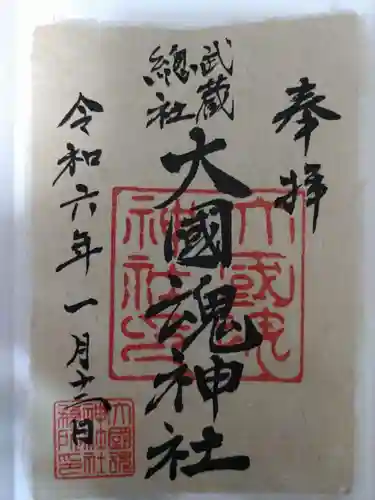 奉拝
武蔵
總社
大國魂神社
令和六年一月十六日
大國魂
神社之
印
大國魂
神社社
務所印